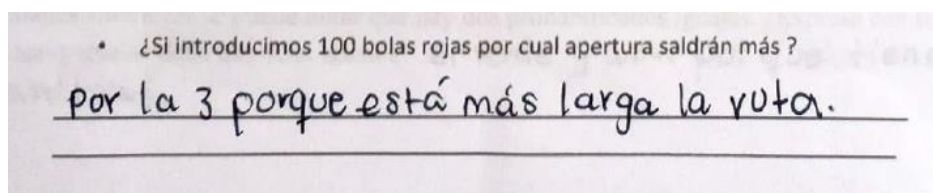 • ¿Si introducimos 100 bolas rojas por cual apertura saldrán más ?
por la 3 porque está más larga la ruta.